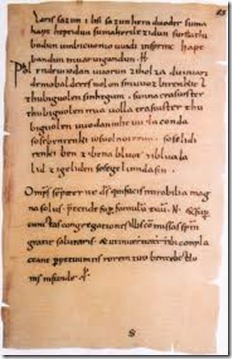 Eiris sazun idisi sazun hera duoder suma
hapt heptidun sumaherilezidun sumaclu
bodun umbicuonio uuidi insprinc hapt
bandun inuar uigandun· H
Phol endeuuodan uuorun ziholza du uuart
demobalderes uolon sinuuoz birenkict
thubiguolen sinhtgunt· sunna erasuister
thubiguolen friia uolla erasuister thu
biguolen uuodan sohe uuola conda
sosebenrenki sosebluotrenki soselidi
renki ben zibena bluot zibluoda
lid zigeliden sosegelimida sin·
sempiterne ds qui facis mirabilia mag
na solus· pretende famulum N· &
cunctas congregationes illi commissas
gratie salutaris· & ut in ueritate tibi compla
ceant perpetuum rorem tuae benedictio
nis infunde·